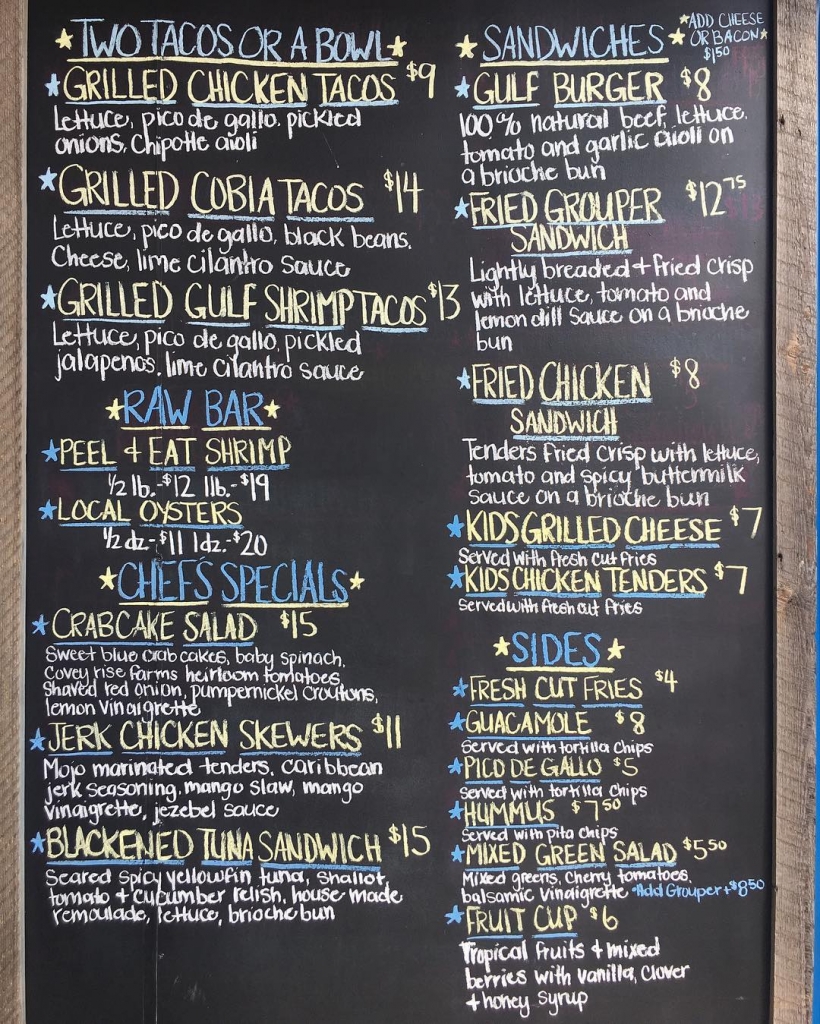 TWO TACOS OR A BOWL
GRILLED CHICKEN TACOS $9
Lettuce, pico de gallo, pickled
onions, Chipotle aioli
GRILLED COBIA TACOS $14
Lettuce, pico de gallo, black beans,
Cheese, lime cilantro sauce
GRILLED GULF SHRIMP TACOS $13
Lettuce, pico de gallo, pickled
jalapenos, lime cilantro sauce
RAW BAR
PEEL + EAT SHRIMP
1/2 lb.-$12 1lb.-$19
LOCAL OYSTERS
1/2 dz-$11 1dz.-$20
CHEF'S SPECIALS
CRABCAKE SALAD $15
Sweet blue crab cakes, baby spinach,
Covey rise farms heirloom tomatoes,
Shaved red onion, pumpernickel croutons,
lemon vinaigrette
JERK CHICKEN SKEWERS $11
Mojo marinated tenders, caribbean
jerk seasoning, mango slaw, mango
vinaigrette, jezebel sauce
BLACKENED TUNA SANDWICH $15
Seared spicy yellowfin tuna, shallot,
tomato + cucumber relish, house made
remoulade, lettuce, brioche bun
SANDWICHES
ADD CHEESE
OR BACON
$1.50
GULF BURGER $8
100% natural beef, lettuce,
tomato and garlic aioli on
a brioche bun
FRIED GROUPER $12.75
SANDWICH
Lightly breaded + fried crisp
with lettuce, tomato and
lemon dill sauce on a brioche
bun
FRIED CHICKEN $8
SANDWICH
Tenders fried crisp with lettuce,
tomato and spicy buttermilk
sauce on a brioche bun
KIDS GRILLED CHEESE $7
Served with fresh cut fries
KIDS CHICKEN TENDERS $7
Served with fresh cut fries
SIDES
FRESH CUT FRIES $4
GUACAMOLE $8
Served with tortilla chips
PICO DE GALLO $5
Served with tortilla chips
HUMMUS $7.50
Served with pita chips
MIXED GREEN SALAD $5.50
Mixed greens, cherry tomatoes,
balsamic vinaigrette *Add Grouper +$8.50
FRUIT CUP $6
Tropical fruits + mixed
berries with vanilla, clover
+ honey syrup